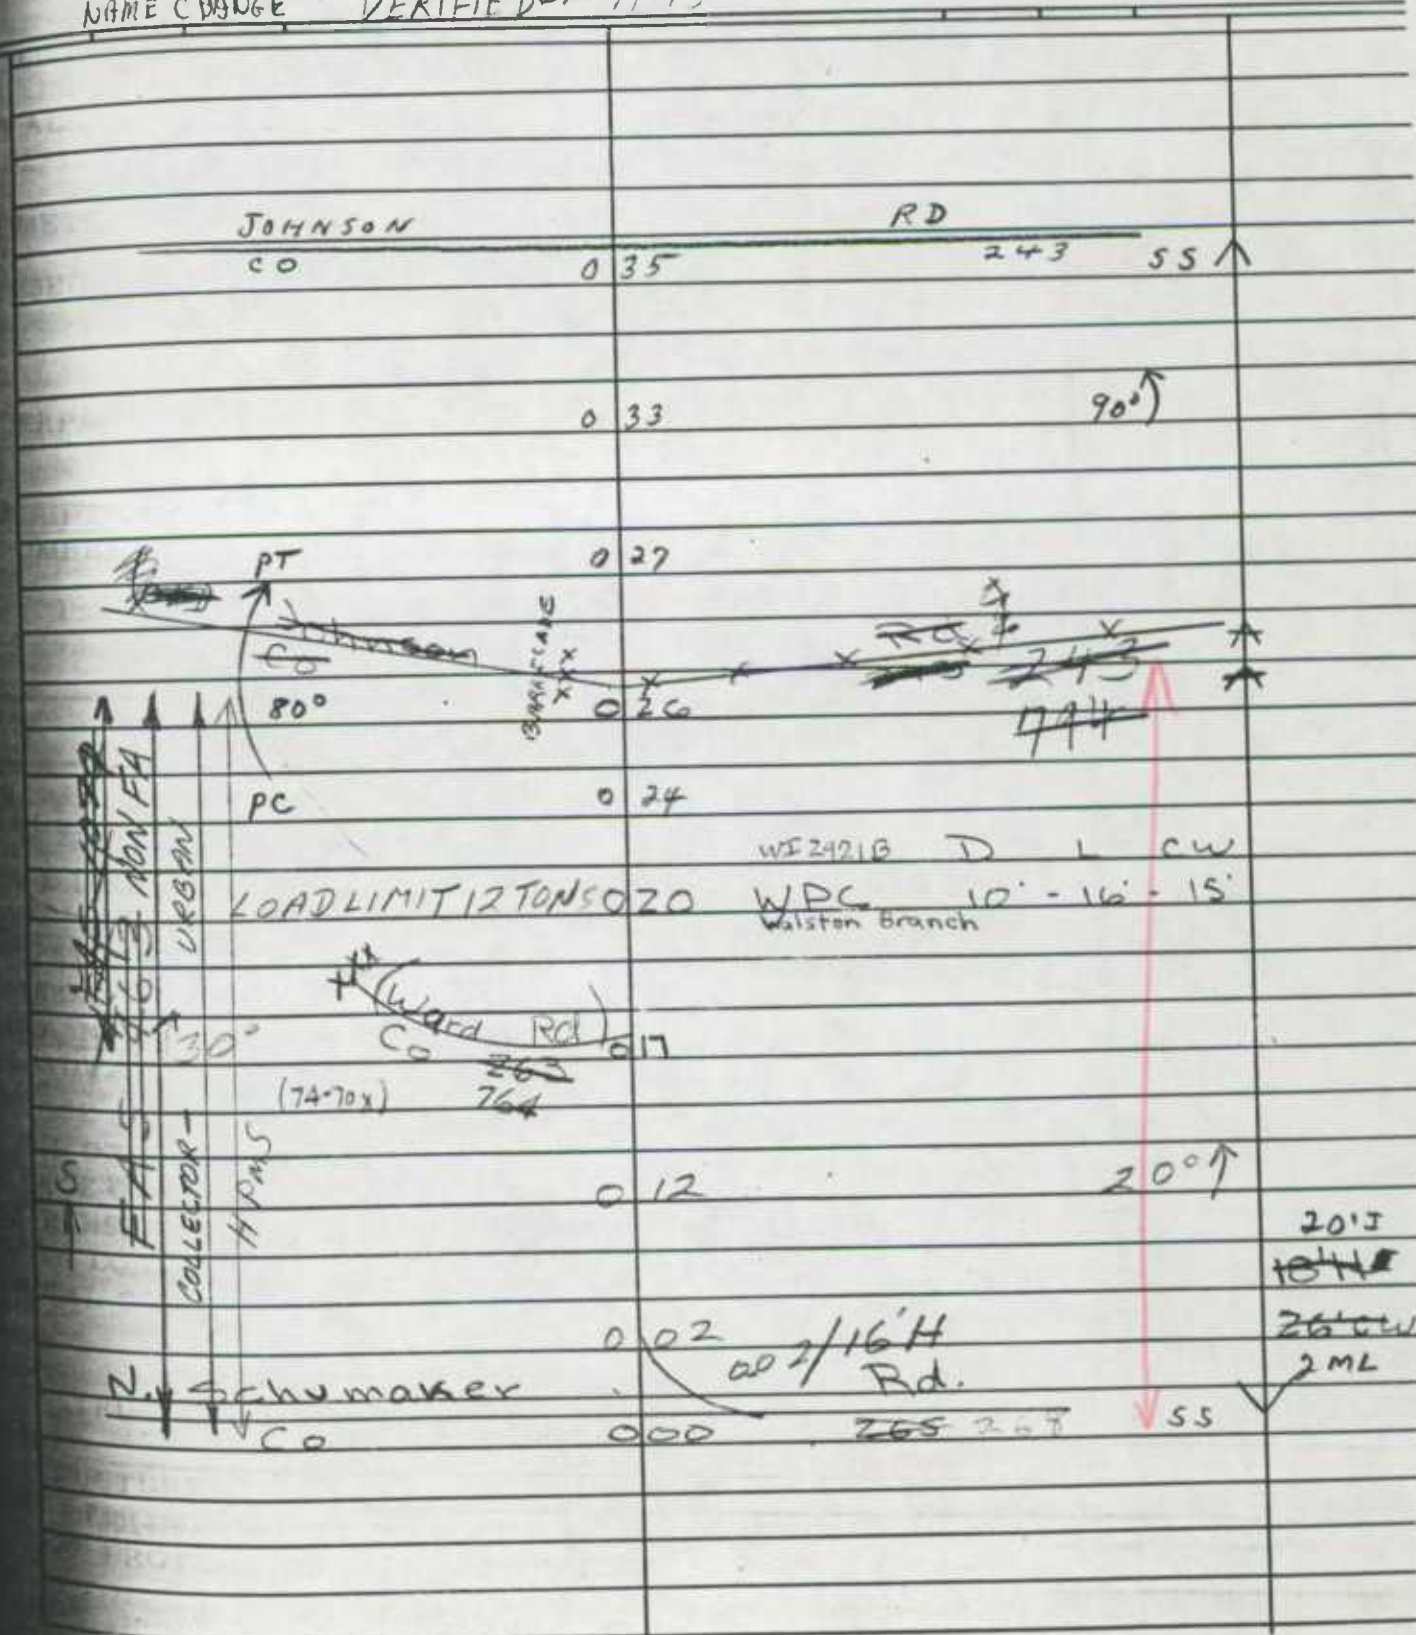 NAME CHANGE VERIFIED
JOHNSON RD
CO 0 35 243 SS
0 33 90°
PT 0 27
Johnson Rd
Co 243
BARRICADE
XXXX
80° 0 26 794
PC 0 24
WI2421B D L CW
LOAD LIMIT 12 TONS 0 20 WPC 10' - 16' - 15'
Walston Branch
(Ward Rd)
Co 0 17
263
(74-70x) 764
30°
NON FA
URBAN
FAS
COLLECTOR
HPMS
S
0 12 20°
20'J
18'H
26'CW
2 ML
0 02 002/16'H
N. Schumaker Rd.
Co 0 00 265 268 SS